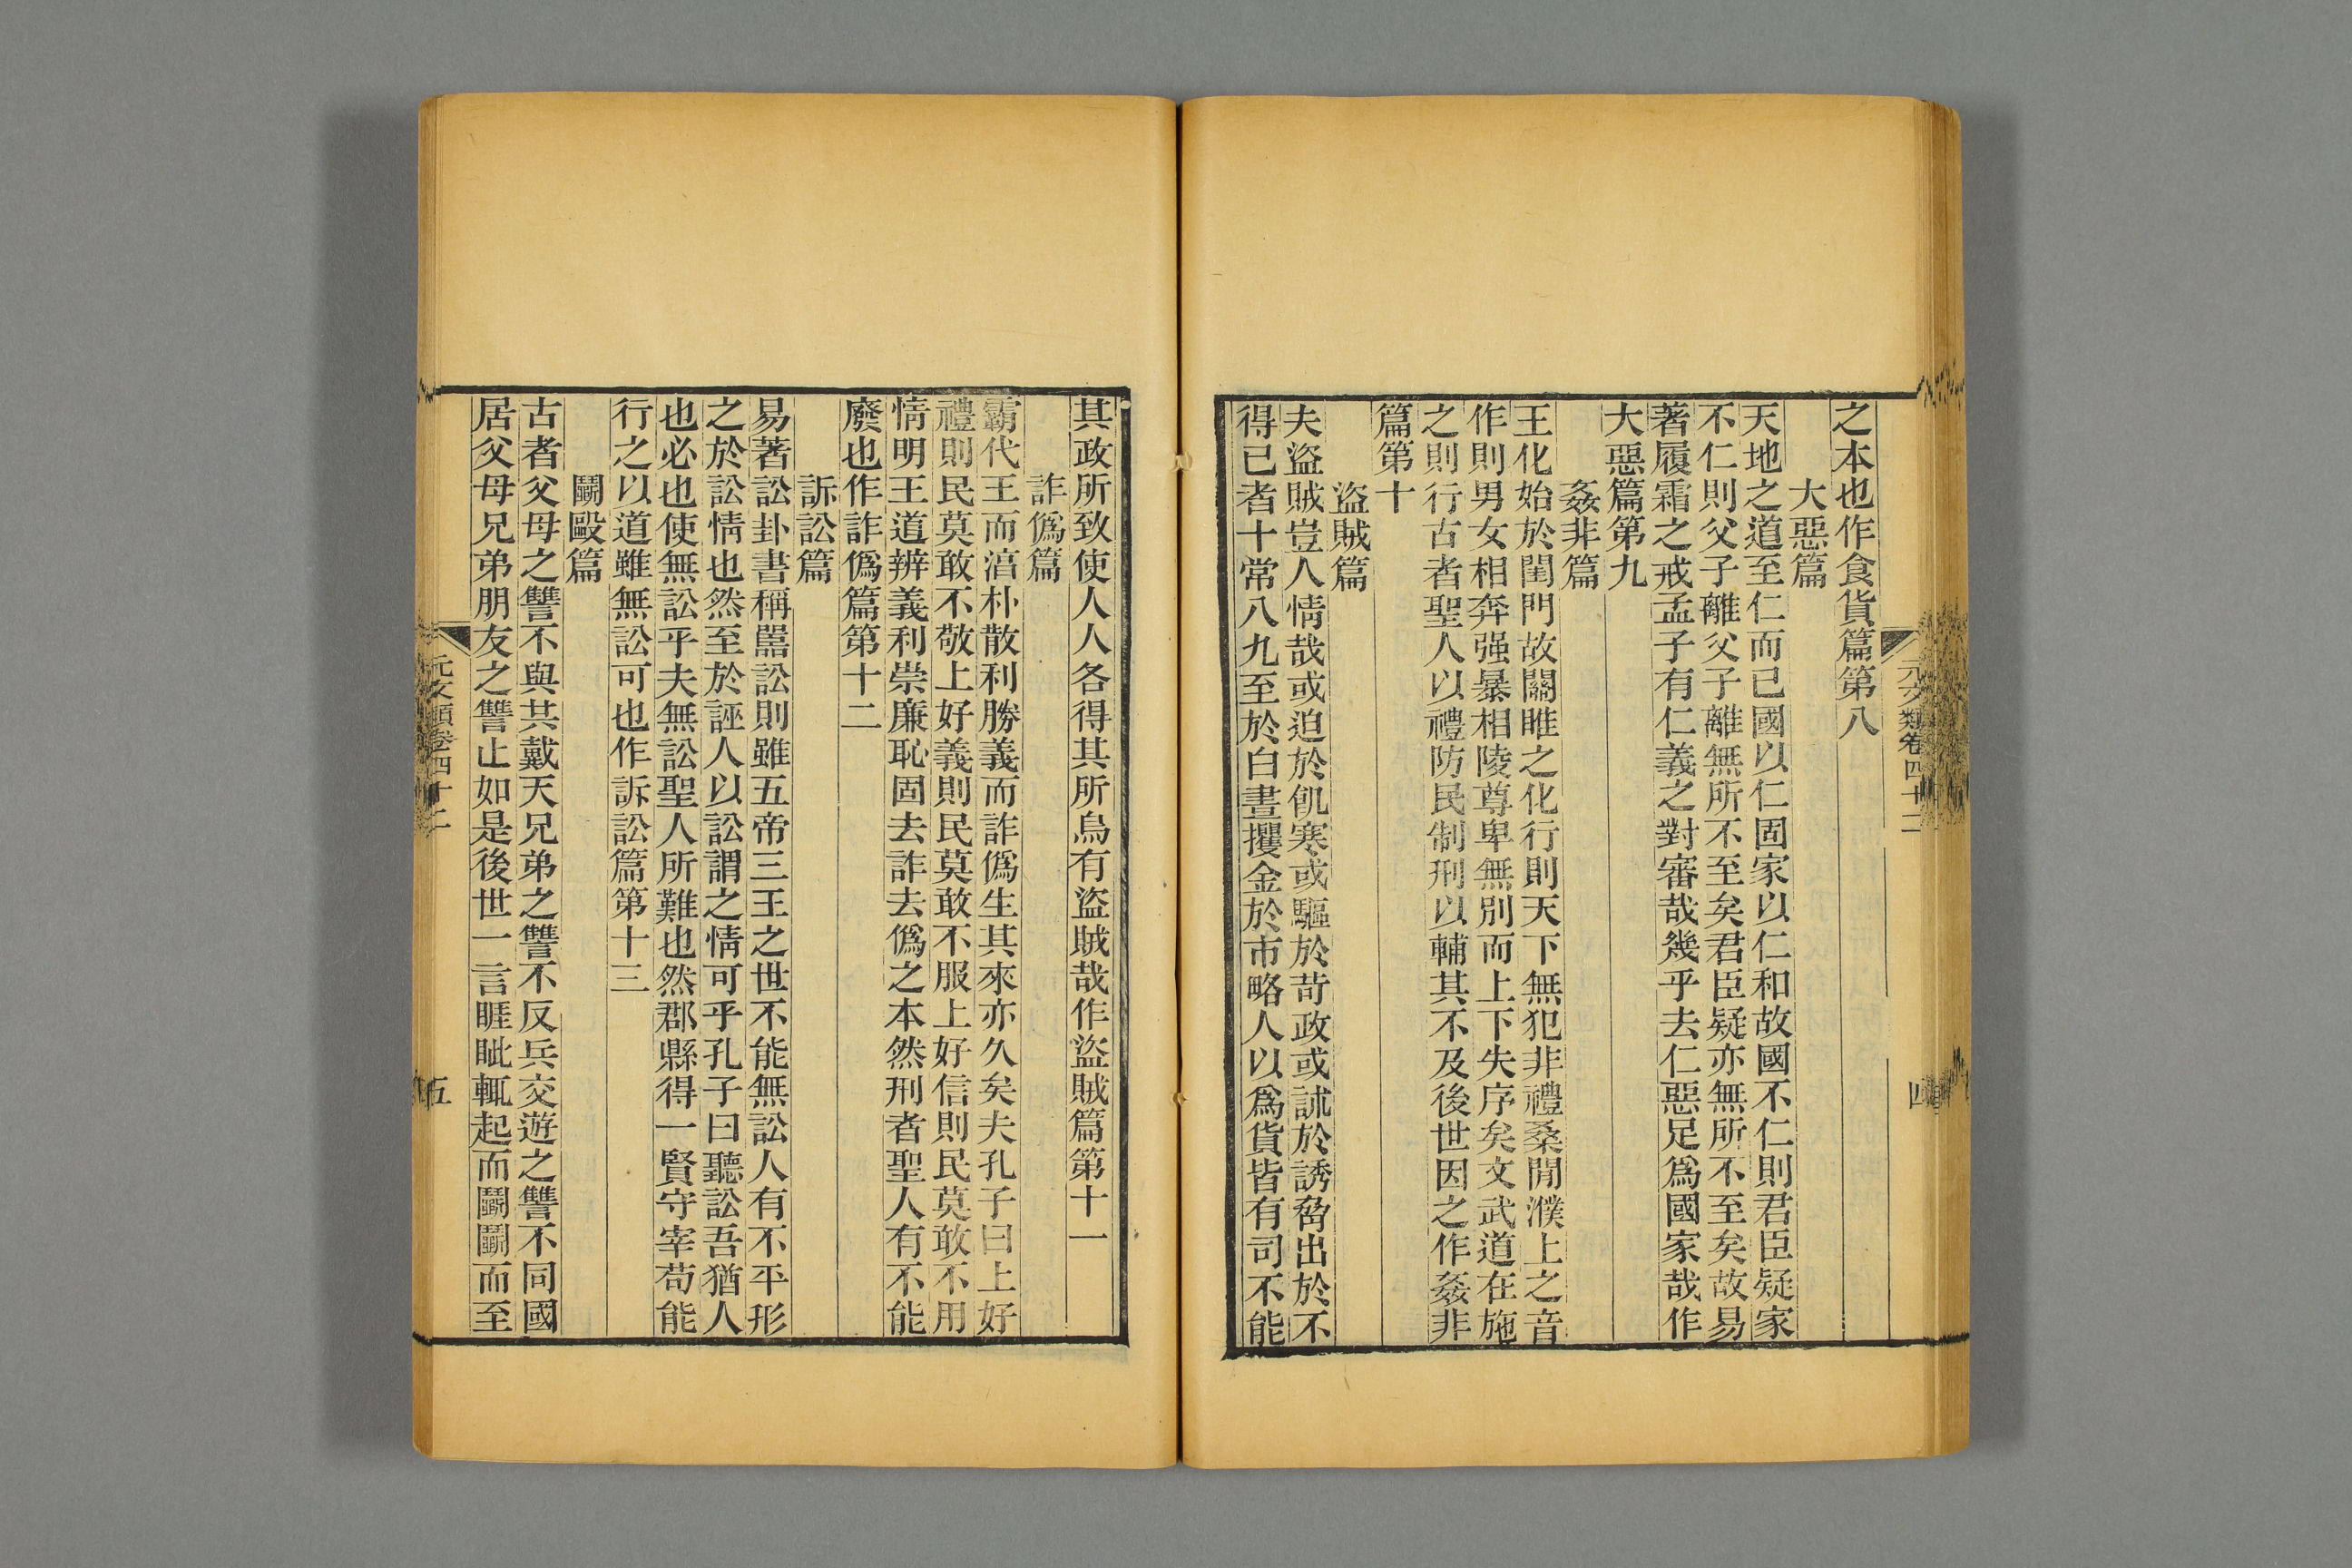 元文類卷四十二
四
之本也作食貨篇第八
大惡篇
天地之道至仁而已國以仁固家以仁和故國不仁則君臣疑家
不仁則父子離父子離無所不至矣君臣疑亦無所不至矣故易
著履霜之戒孟子有仁義之對審哉幾乎去仁惡足爲國家哉作
大惡篇第九
姦非篇
王化始於閨門故關雎之化行則天下無犯非禮桑閒濮上之音
作則男女相奔强暴相陵尊卑無別而上下失序矣文武道在施
之則行古者聖人以禮防民制刑以輔其不及後世因之作姦非
篇第十
盜賊篇
夫盜賊豈人情哉或迫於飢寒或驅於苛政或訹於誘脅出於不
得已者十常八九至於白晝攫金於市略人以爲貨皆有司不能
其政所致使人人各得其所烏有盜賊哉作盜賊篇第十一
詐僞篇
霸代王而湻朴散利勝義而詐僞生其來亦久矣夫孔子曰上好
禮則民莫敢不敬上好義則民莫敢不服上好信則民莫敢不用
情明王道辨義利崇廉恥固去詐去僞之本然刑者聖人有不能
廢也作詐僞篇第十二
訴訟篇
易著訟卦書稱嚚訟則雖五帝三王之世不能無訟人有不平形
之於訟情也然至於誣人以訟謂之情可乎孔子曰聽訟吾猶人
也必也使無訟乎夫無訟聖人所難也然郡縣得一賢守宰苟能
行之以道雖無訟可也作訴訟篇第十三
鬭毆篇
古者父母之讐不與共戴天兄弟之讐不反兵交遊之讐不同國
居父母兄弟朋友之讐止如是後世一言睚眦輒起而鬭鬭而至
元文類卷四十二
五